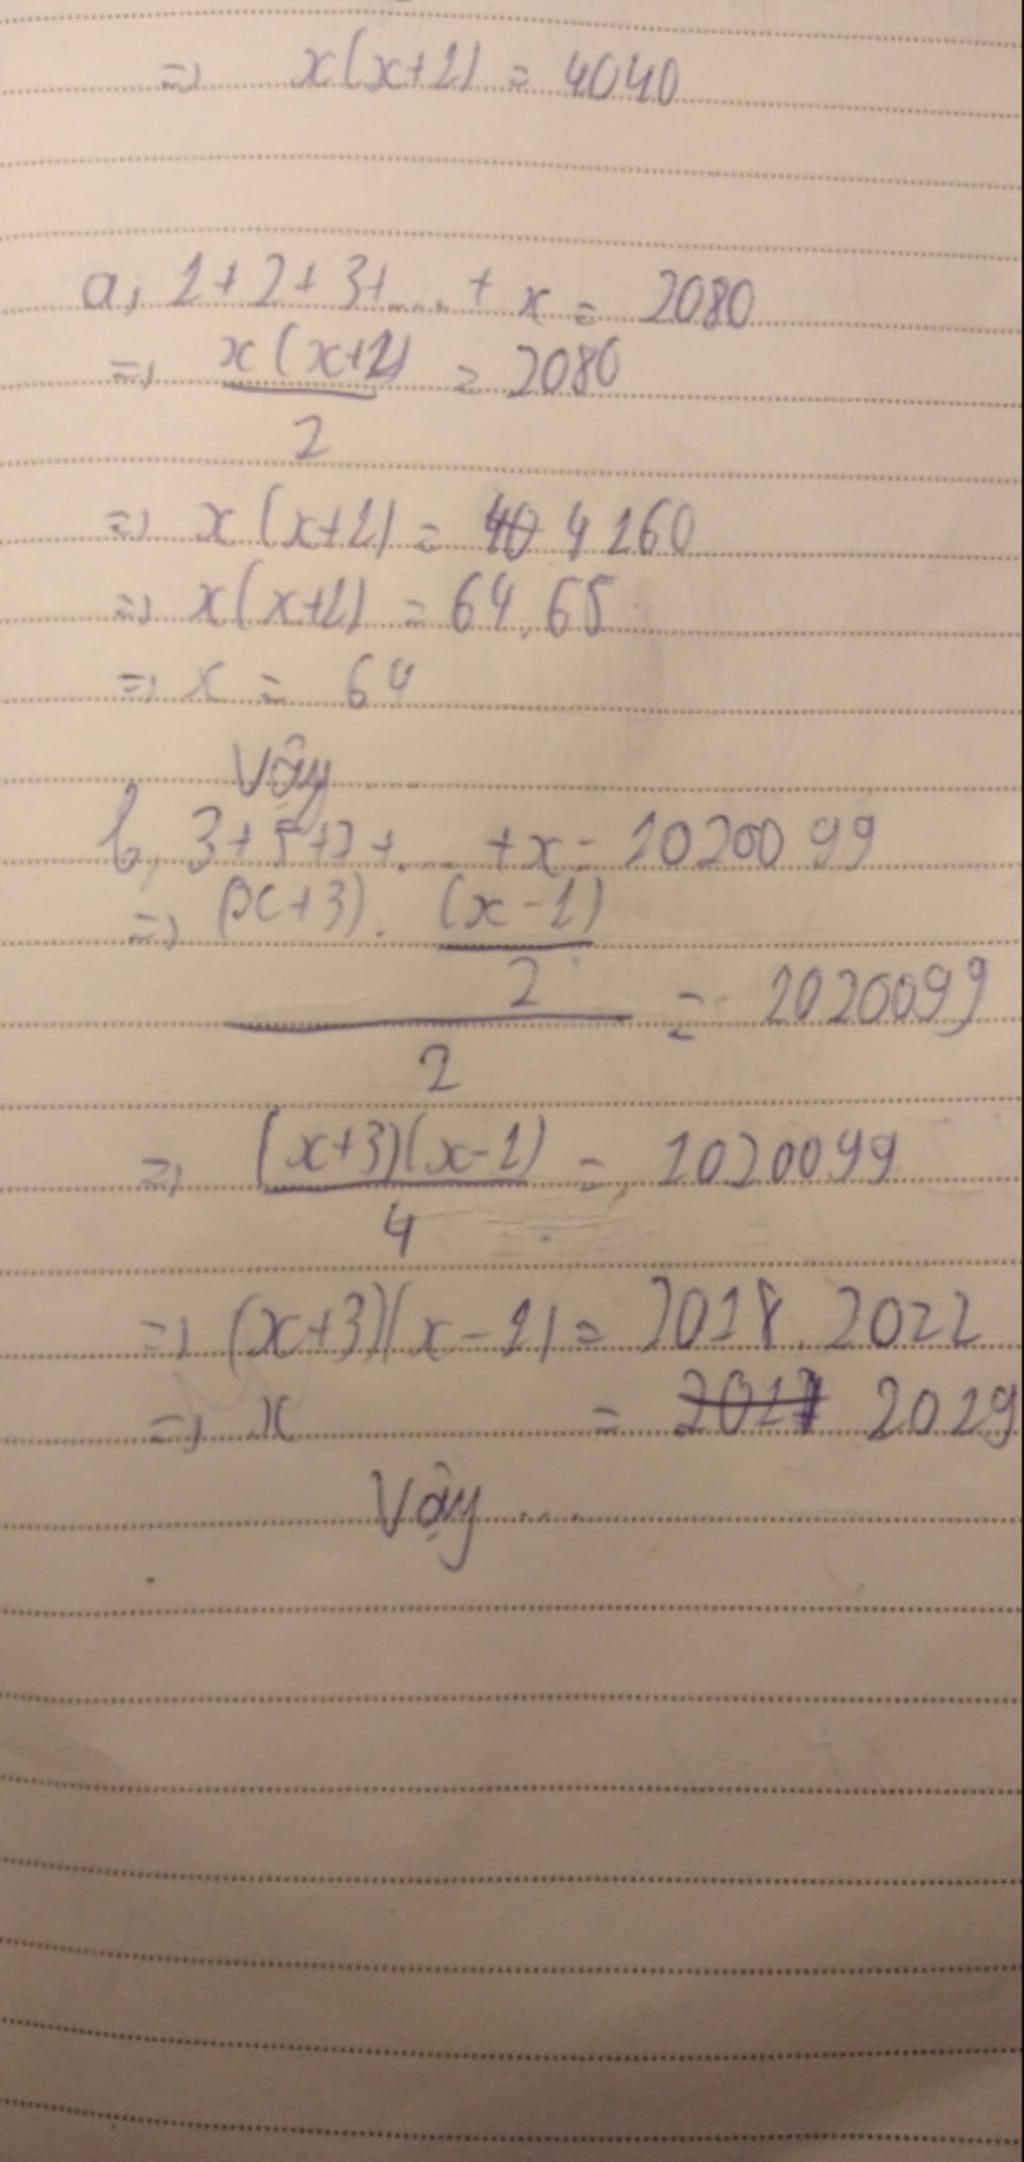 => x(x+1) = 4040
a, 1+2+3+....+ x = 2080
=> x(x+1)/2 = 2080
=> x(x+1) = 4160
=> x(x+1) = 64.65
=> x = 64
Vậy
b, 3+5+7+....+x = 1020099
=> (x+3).(x-1)/2/2 = 1020099
=> (x+3)(x-1)/4 = 1020099
=> (x+3)(x-1) = 2018.2022
=> x = 2019
Vậy....